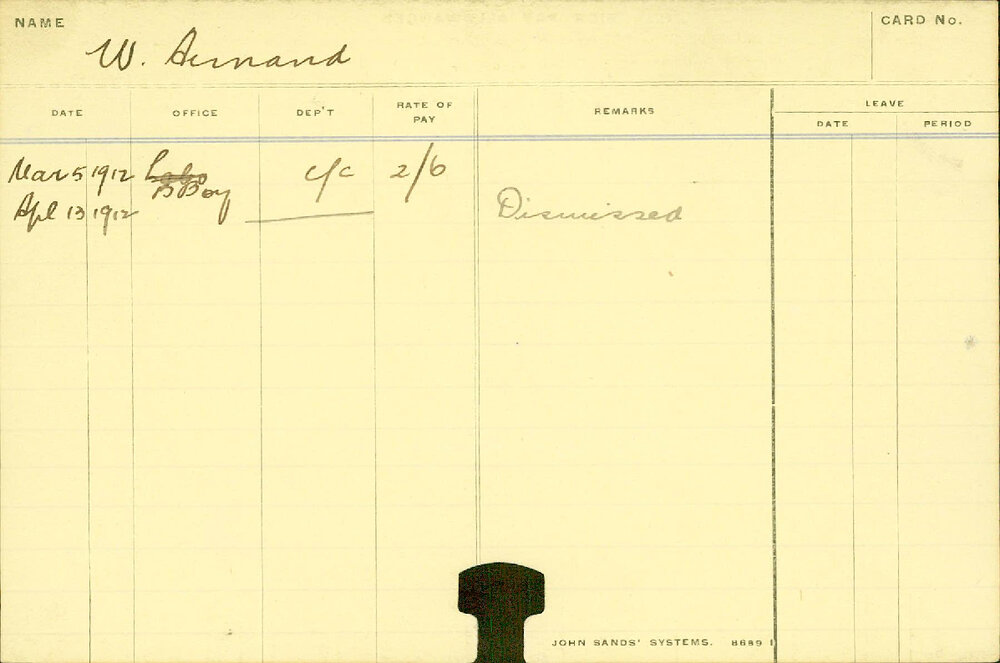 NAME
W. Aernand
CARD No.
DATE OFFICE DEP'T RATE OF PAY REMARKS LEAVE
DATE PERIOD
Mar 5 1912 B Boy c/c 2/6
Apl 13 1912 Dismissed
JOHN SANDS' SYSTEMS. 8689